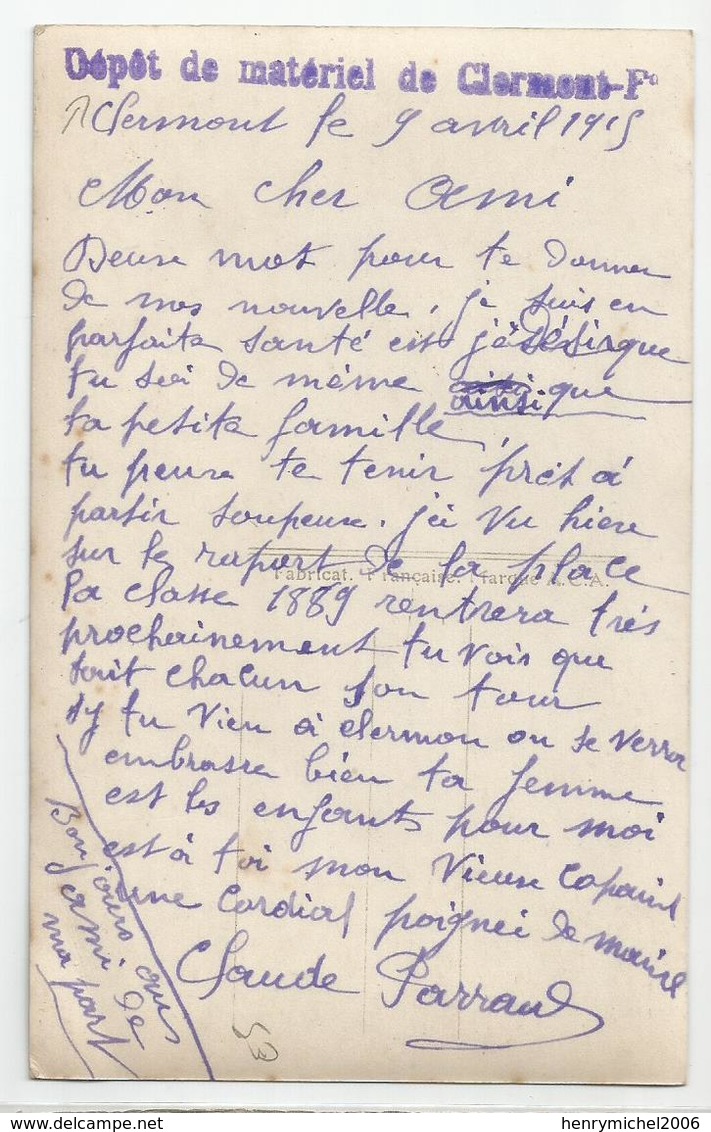 Dépôt de matériel de Clermont-Fd
Clermont le 9 avril 1915
Mon cher Ami
Deuse mot pour te donner
de nos nouvelle, je suis en
parfaite santé est j'é désir que
tu soi de même ainsi que
ta petite famille,
tu peuse te tenir prét á
partir soupeuse. j'ai vu hiere
sur le raport de la place
Fabricat. Française. Marque A.C.A.
la classe 1889 rentrera trés
prochainement tu vois que
sait chacun son tour
sy tu vien á clermon on se verra
embrasse bien ta femme
est les enfants pour moi
est á toi mon vieuse copaint
une cordial poignei de mains
Claude Parraud
Bonjours aus
ami de
ma part
53
henrymichel2006